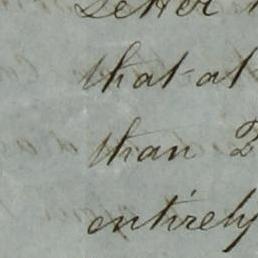 Letter
that at
than
entirely